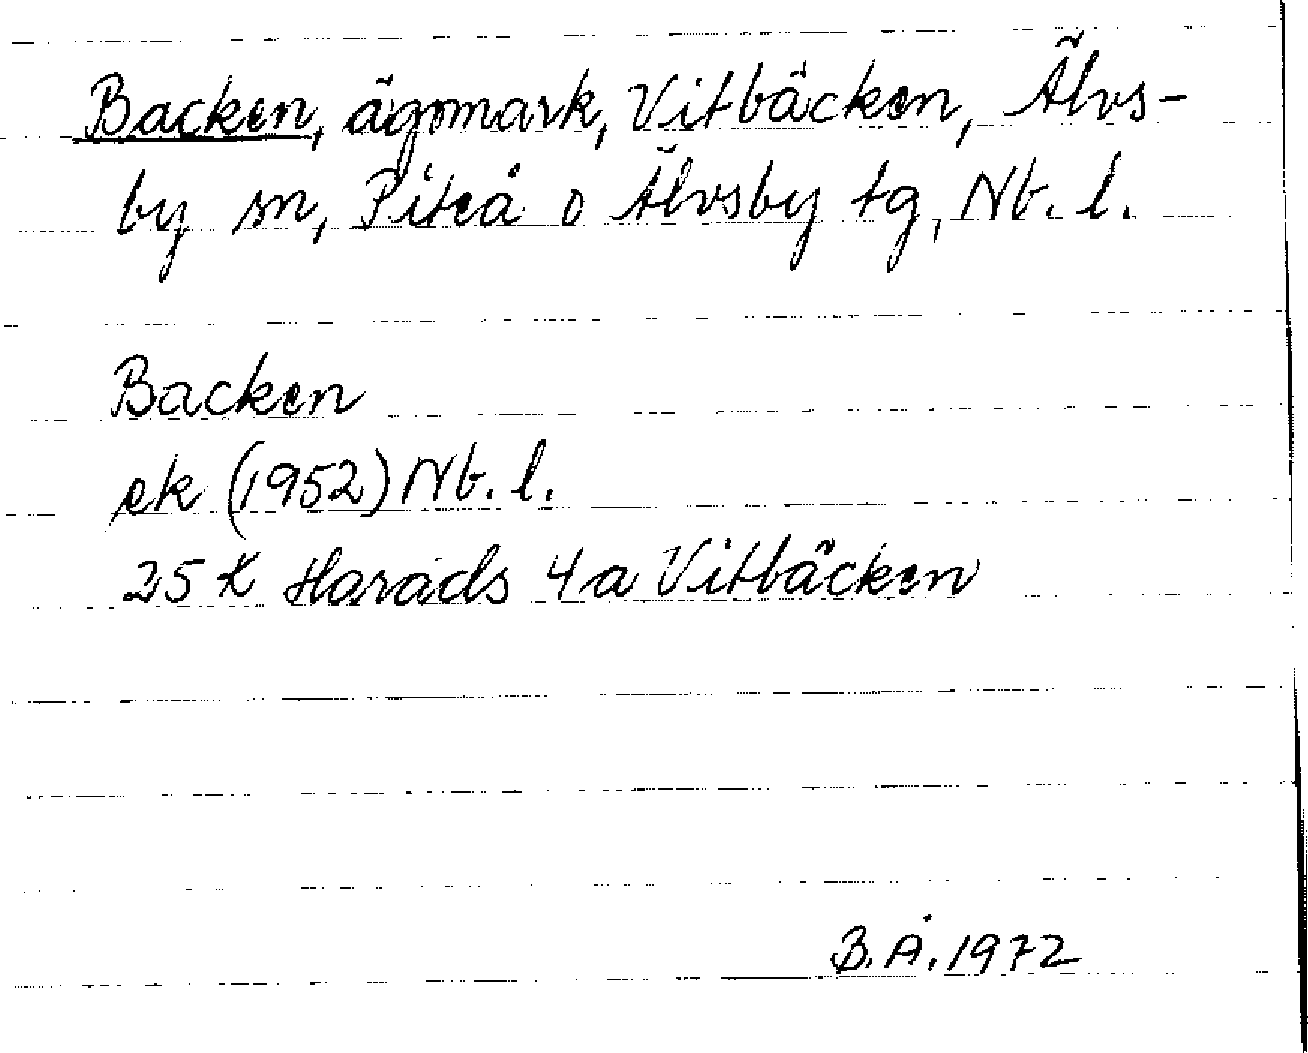 Backen, ägomark, Vitbäcken, Älvs-
by sn, Piteå o Älvsby tg, Nb. l.
Backen
ek (1952) Nb. l.
25 K Harads 4a Vitbäcken
B.Å. 1972